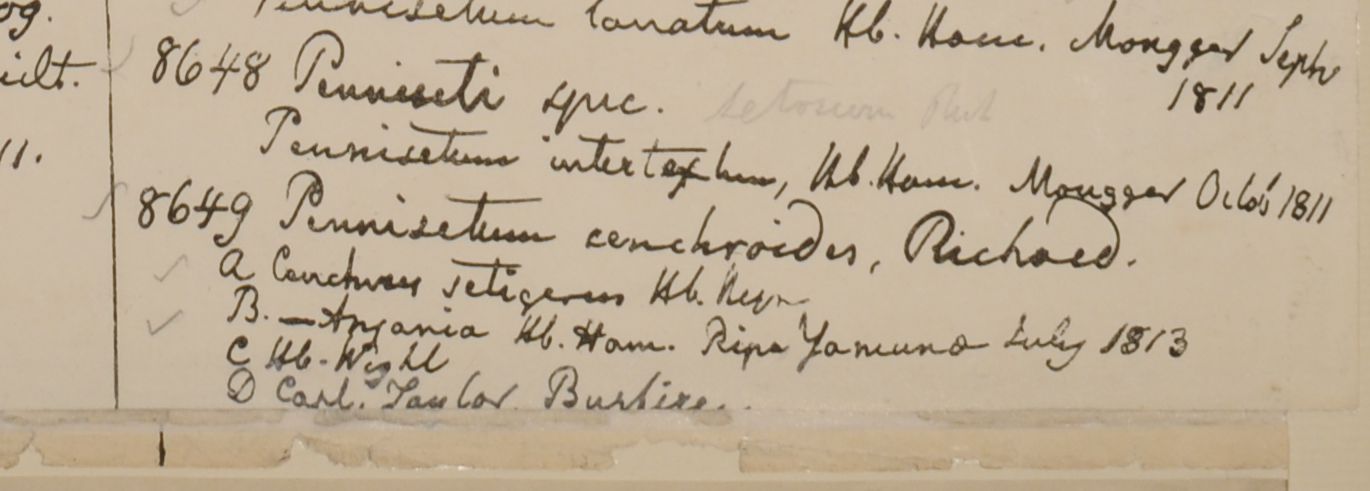 og.
Pennisetum lanatum Hb. Ham. Mongger Septr
1811
ilt.
8648 Penniseti spec. setosum Rich
11.
Pennisetum intertextum, Hb. Ham. Mongger Octob 1811
8649 Pennisetum cenchroides, Richard.
A Cenchrus setigerus Hb. Heyn
B. — Anjania Hb. Ham. Ripa Yamuna July 1813
C Hb. Wight
D Capt. Taylor Bushire.